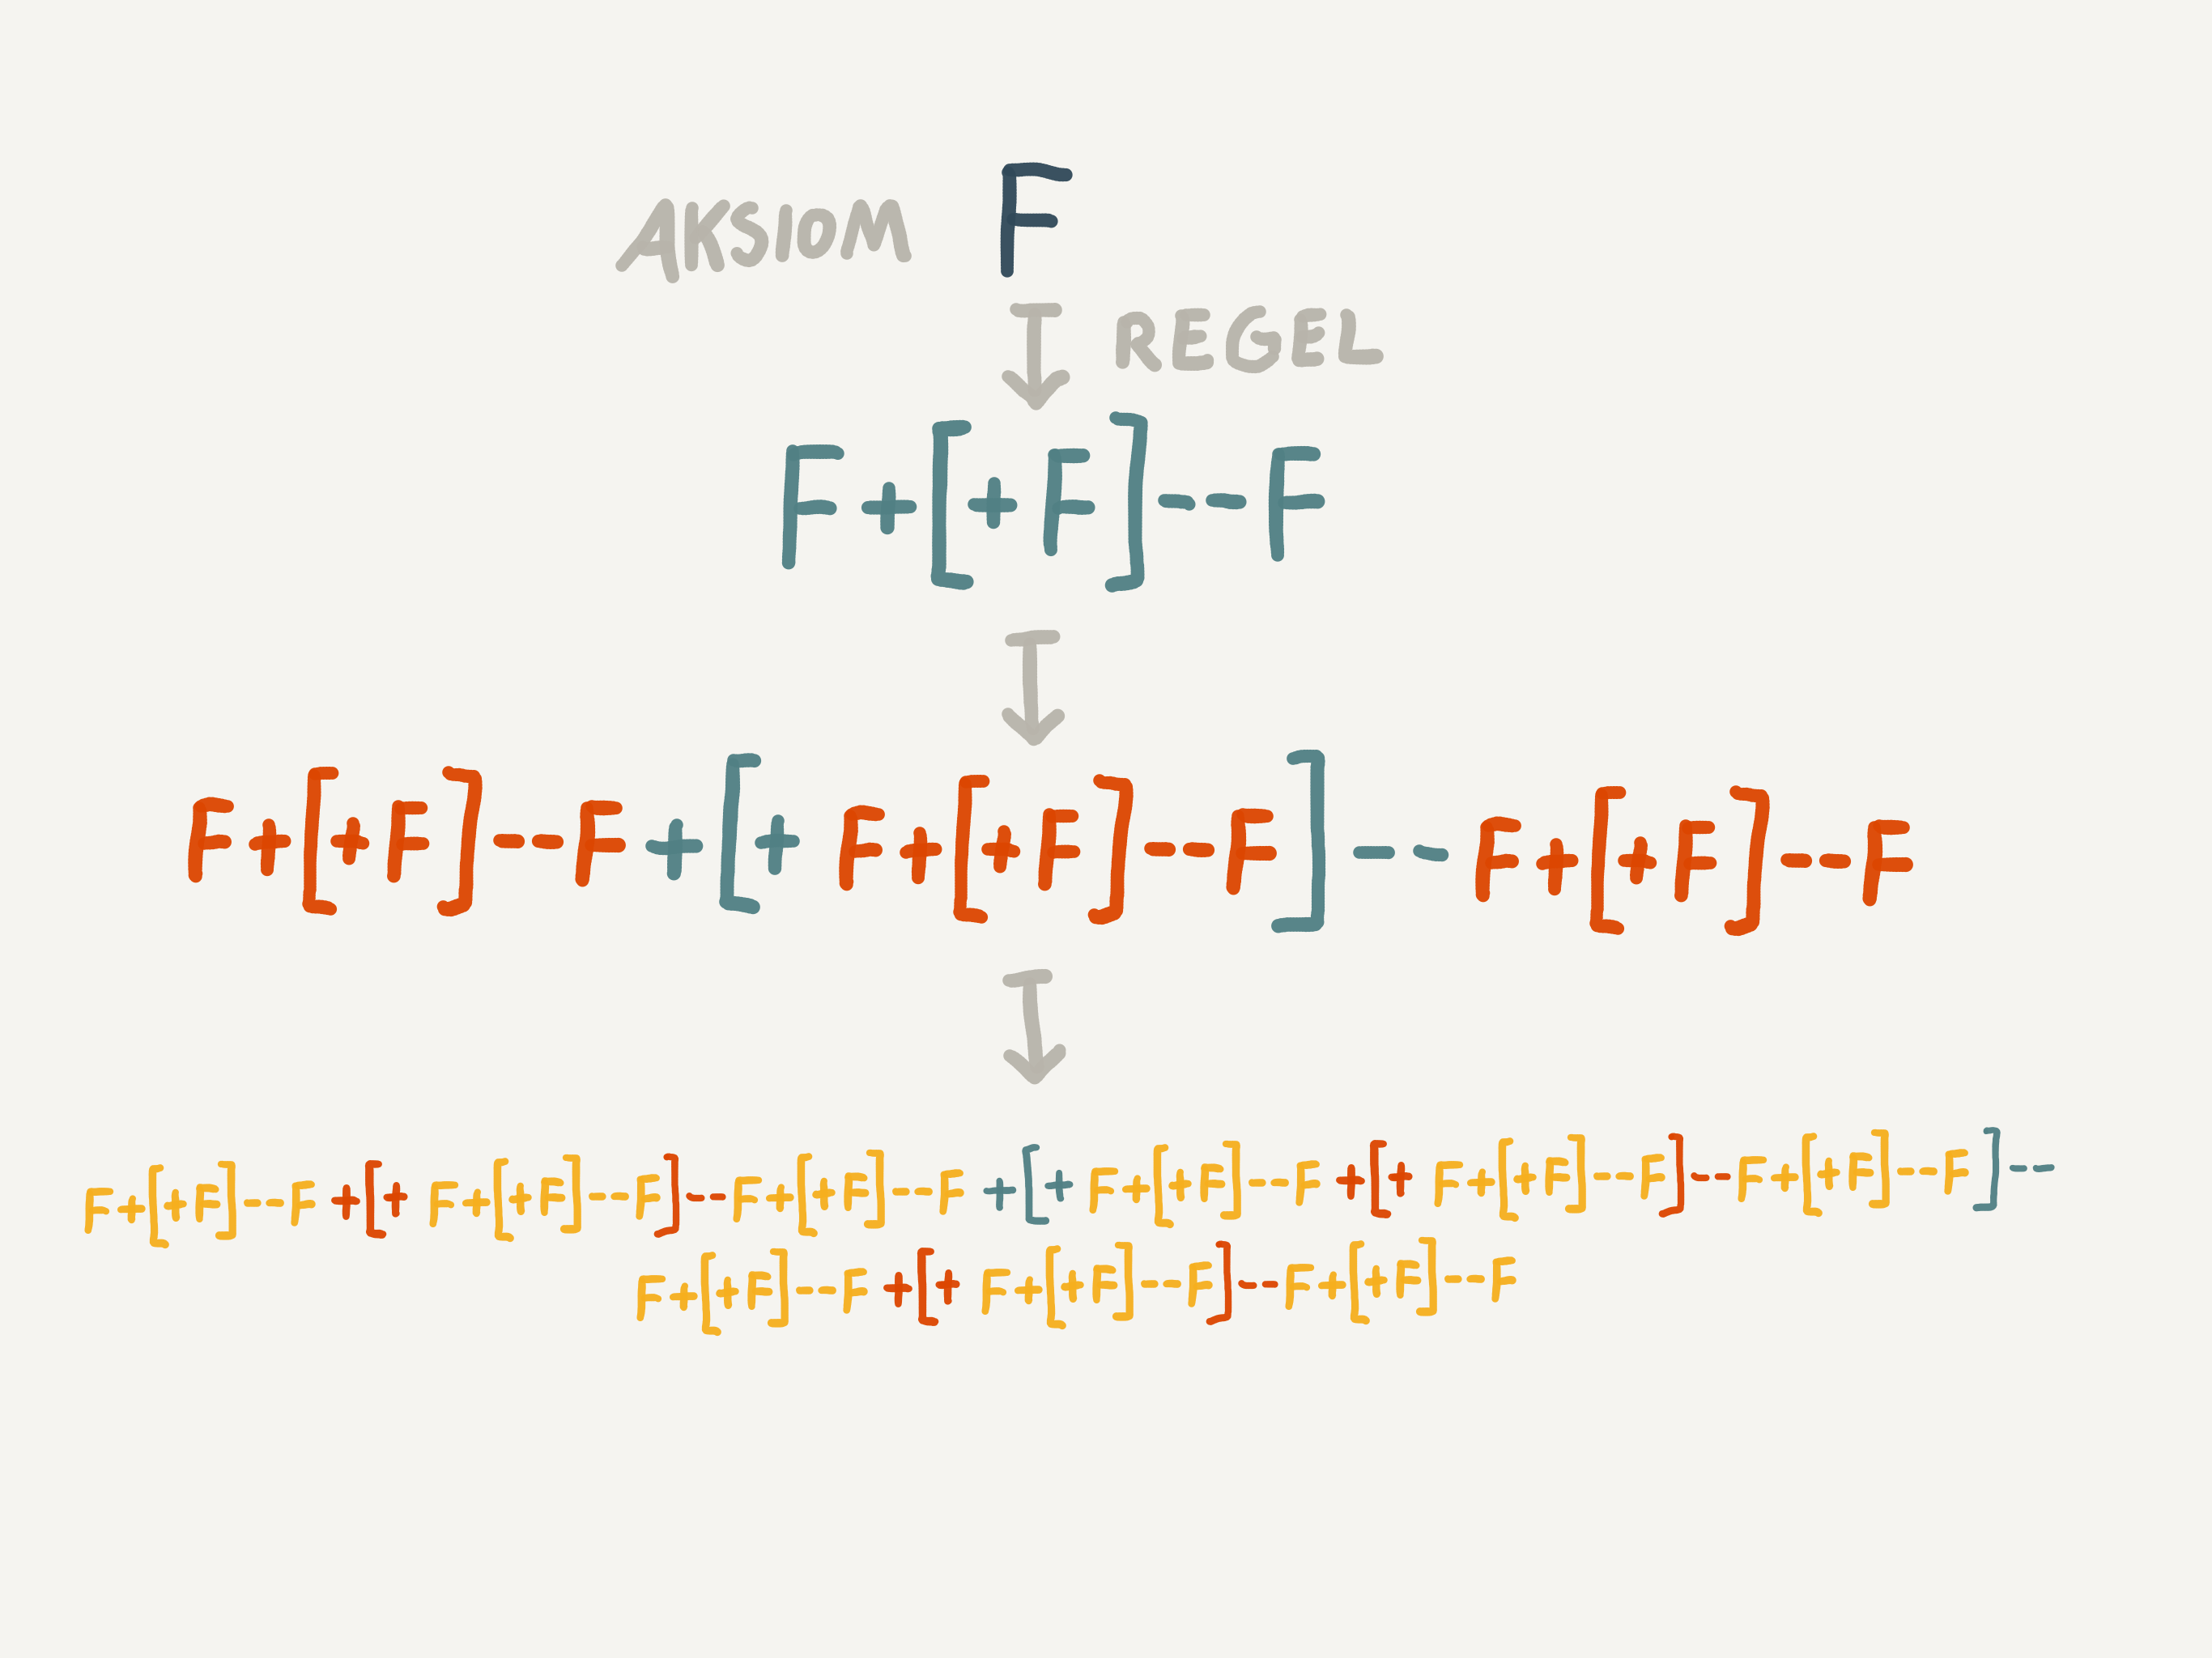 AKSIOM F
REGEL
F+[+F]--F
F+[+F]--F+[+F+[+F]--F]--F+[+F]--F
F+[+F]--F+[+F+[+F]--F]--F+[+F]--F+[+F+[+F]--F+[+F+[+F]--F]--F+[+F]--F]--
F+[+F]--F+[+F+[+F]--F]--F+[+F]--F